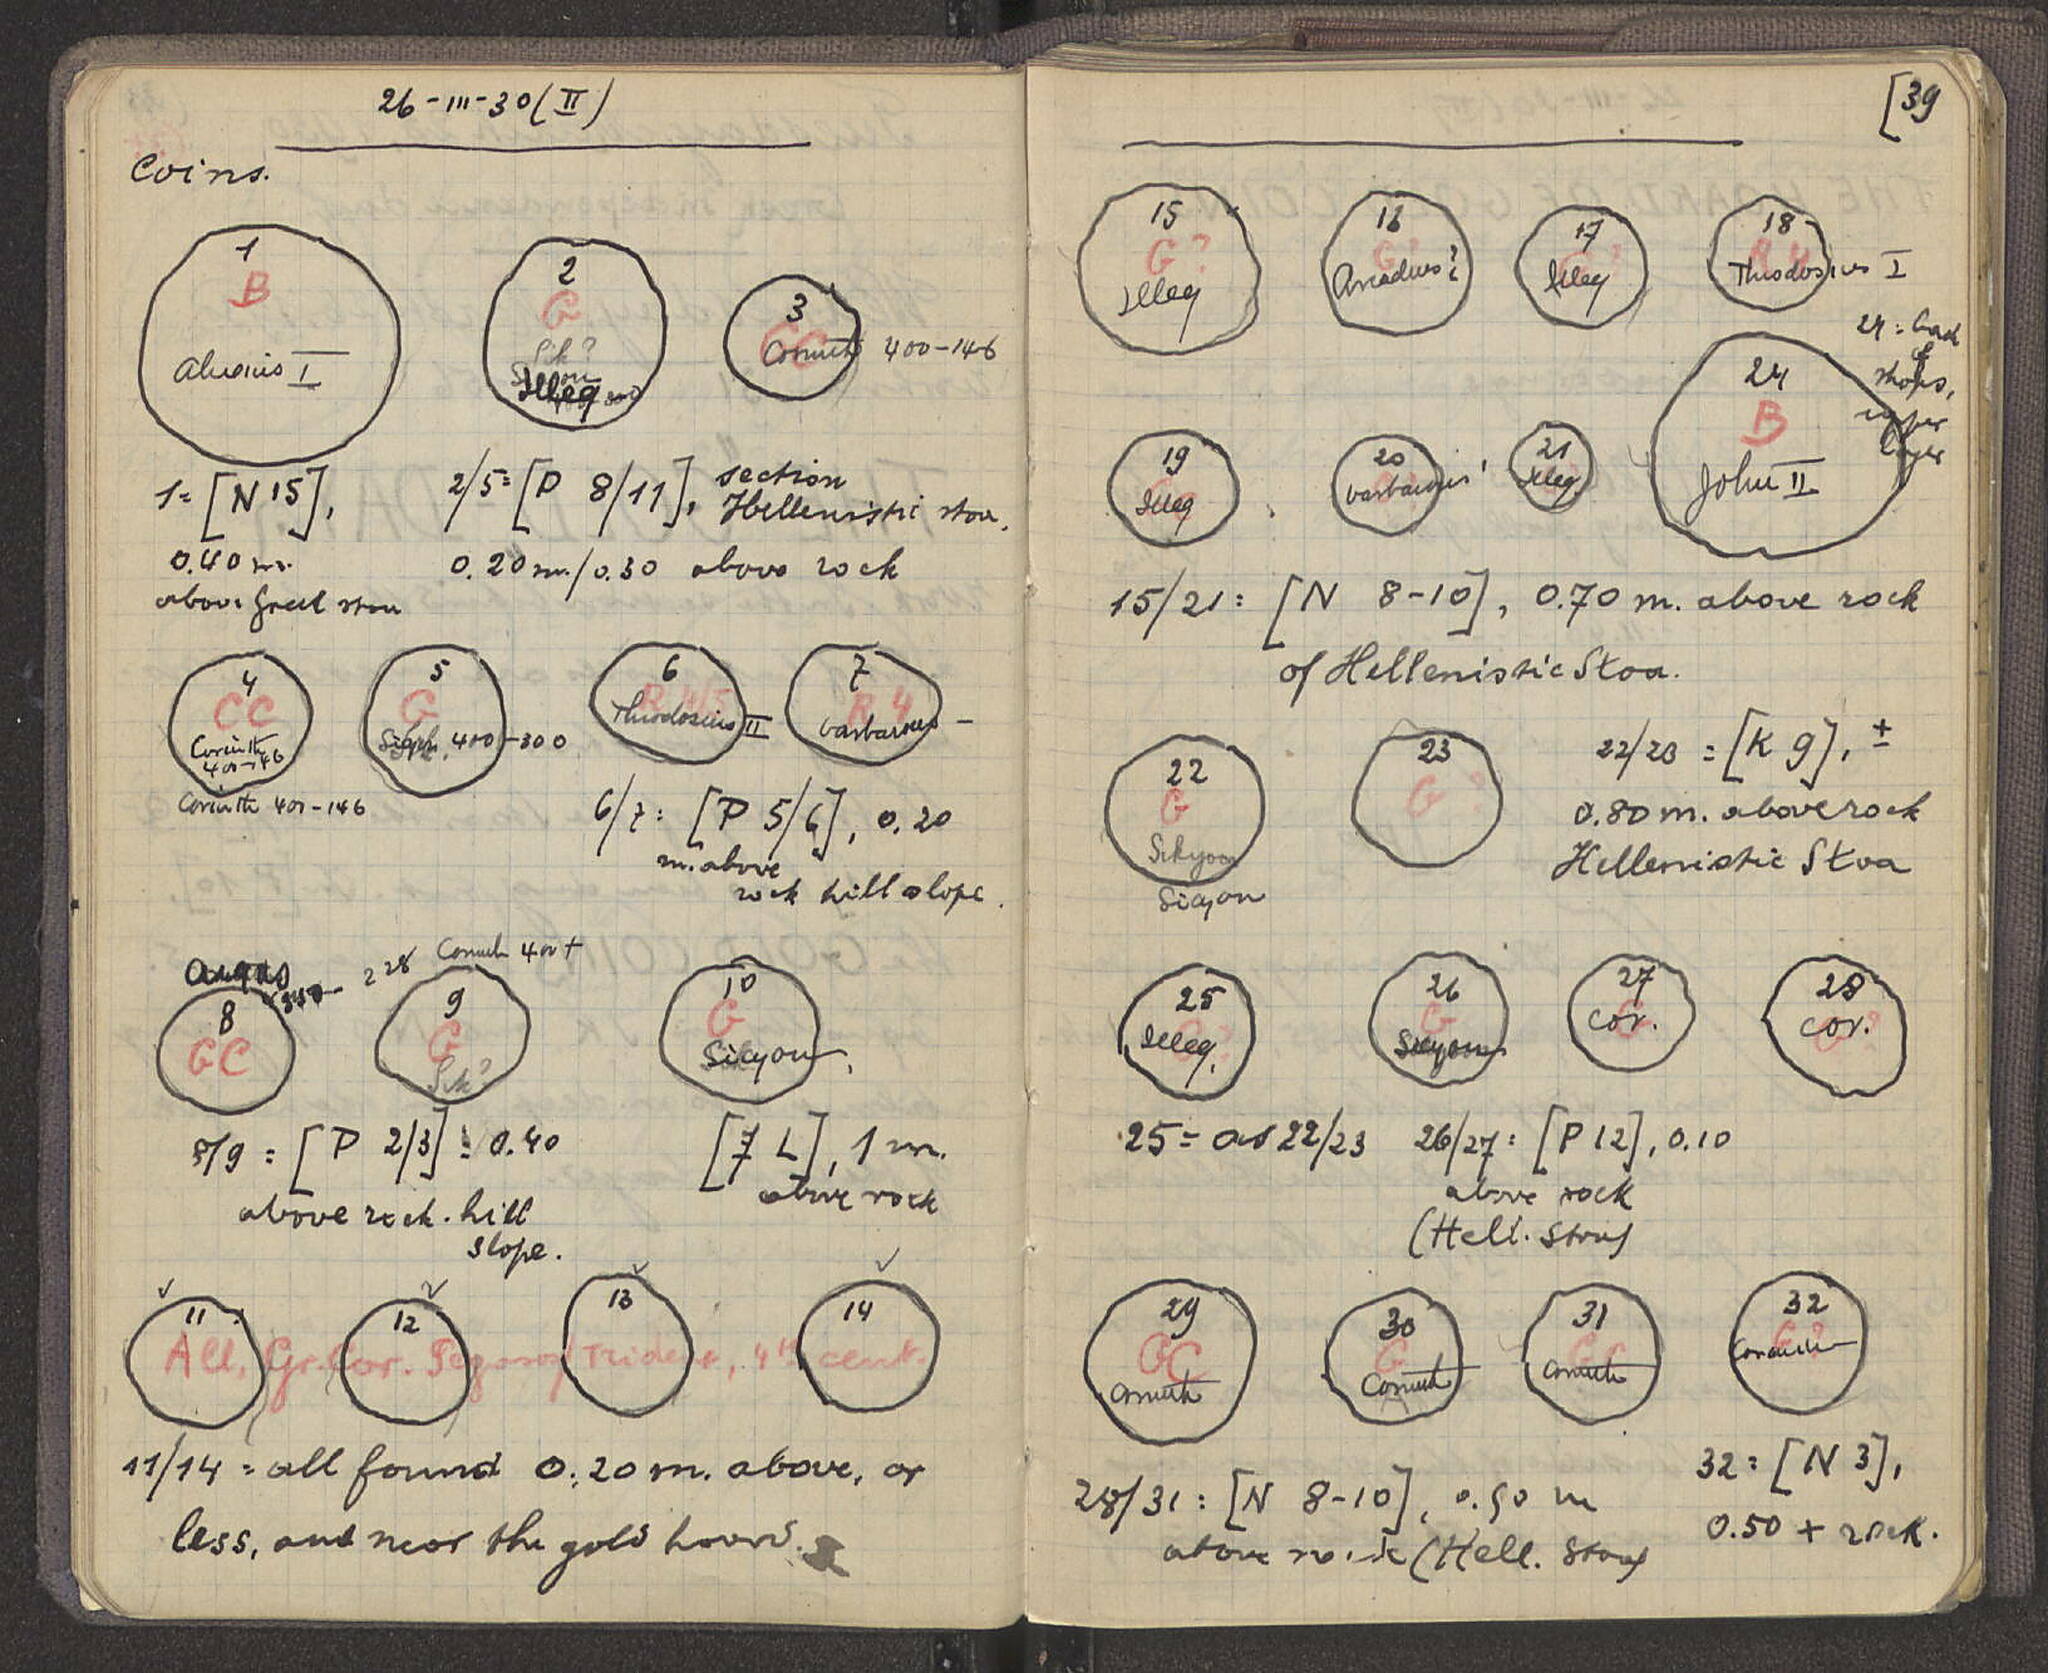 26-III-30 (II)
Coins.
1
B
Alexius I
2
G
Sik?
Sicyon
Illeg
3
GC
Corinth 400-146
1 = [N 15],
0.40 m.
above Greek stoa
2/5 = [P 8/11], section
Hellenistic stoa.
0.20 m./0.30 above rock
4
CC
Corinth
400-146
Corinth 400-146
5
G
400-300
6
R 4/5
Theodosius II
7
R 4
barbarous
6/7 = [P 5/6], 0.20
m. above
rock hill slope.
Argos
228
8
GC
Corinth 400+
9
G
Sik?
10
G
Sicyon
8/9 = [P 2/3] = 0.40
above rock. hill
slope.
[7 L], 1 m.
above rock
11
12
13
14
All, Gr. Cor. Pegasos/Trident, 4th cent.
11/14 = all found 0.20 m. above, or
less, and near the gold hoard.
[39
15
G?
Illeg
16
G?
Arcadius?
17
Illeg
18
R 4
Theodosius I
19
Illeg
20
barbarous
21
Illeg.
24
B
John II
24 = back
of
shops,
upper
layer
15/21 = [N 8-10], 0.70 m. above rock
of Hellenistic Stoa.
22
G
Sikyon
Sicyon
23
G?
22/23 = [K 9], ±
0.80 m. above rock
Hellenistic Stoa
25
G?
Illeg.
26
G
Sicyon
27
G
Cor.
28
G?
Cor.
25 = as 22/23
26/27 = [P 12], 0.10
above rock
(Hell. Stoa)
29
GC
Corinth
30
G
Corinth
31
GC
Corinth
32
G?
Corinth
28/31 = [N 8-10], 0.50 m
above rock (Hell. Stoa)
32 = [N 3],
0.50 + rock.